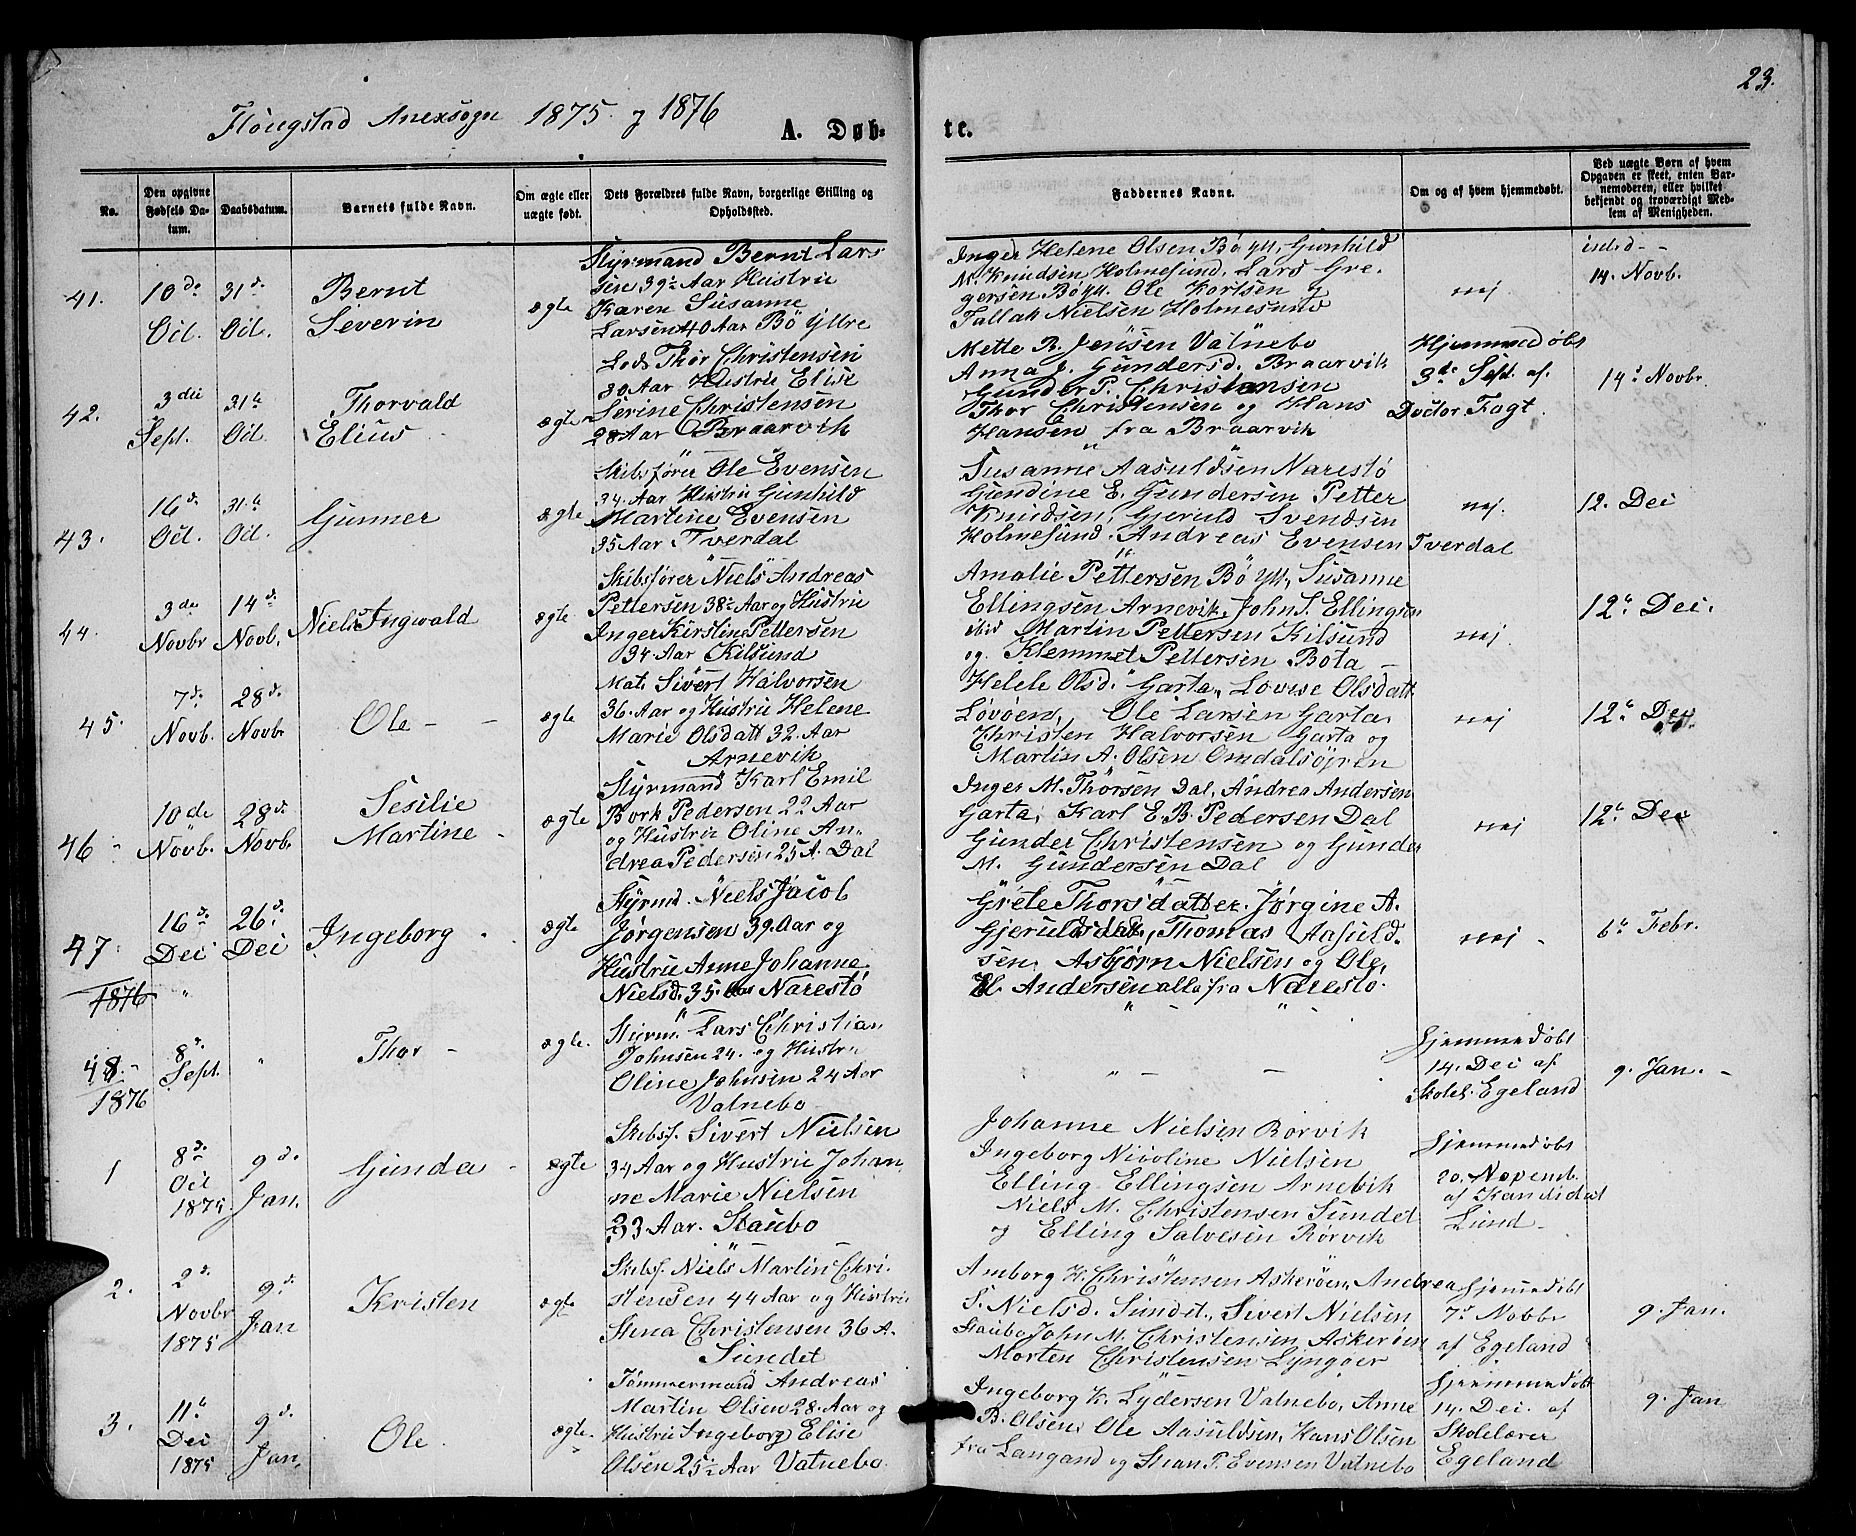 23.
Flöugstad Anexsogn 1875 og 1876
A. Døb-
te.
No.
Den opgivne Fødsels Da-
tum.
Daabsdatum.
Barnets fulde Navn.
Om ægte eller
uægte født.
Dets Forældres fulde Navn, borgerlige Stilling og
Opholdssted.
Faddernes Navne.
Om og af hvem hjemmedøbt.
Ved uægte Børn af hvem
Opgaven er skeet, enten Bar-
nemoderen, eller hvilket
bekjendt og troværdigt Med-
lem af Menigheden.
41.
10de
Oct.
31d.
Oct.
Bernt
Severin
ægte
Styrmand Bernt Lars
sen 39½ Aar Hustrue
Karen Susanne
Larsen 40 Aar Bö Yttre
Inger Helene Olsen Bö Ytt, Gunhild
M. Knudsen Holmesund, Lars Gre-
gersen Bö Ytt. Ole Karlsen og
Tallak Nielsen Holmesund
nej
14. Novb.
42.
3die
Sept.
31te
Oct.
Thorvald
Elius
ægte
Lods Thor Christensen
30 Aar Hustrue Elise
Serine Christensen
28 Aar Braarvik
Mette B. Jensen Valnebo
Anna J. Gundersd. Braarvik
Gunder P. Christensen
Thor Christensen og Hans
Hansen fra Braarvik
Hjemmedøbt
3de Sept. af
Doctor Fagt.
14d Novbr
43.
16d.
Oct.
31te
Oct.
Gunner
ægte
Skibsfører Ole Evensen
34 Aar Hustru Gunhild
Martine Evensen
35 Aar Tverdal
Susanne Aasuldsen Narestö
Gundine E. Gundersen Petter
Knudsen, Gjeruld Svendsen
Holmesund. Andreas Evensen Tverdal
nej.
12. Dec
44.
3de
Novbr
14d.
Novb.
Niels Ingwald
ægte
Skibsfører Niels Andreas
Pettersen 38½ Aar og Hustrue
Inger Kirstine Pettersen
34 Aar Kilsund
Amalie Pettersen Bö Ytt. Susanne
Ellingsen Arnevik, John S. Ellingsen
ibid Martin Pettersen Kilsund
og Klemmet Pettersen Bota
nej
12te Dec.
45.
7d.
Novb.
28d.
Novbr
Ole
ægte
Mat. Sivert Halvorsen
36 Aar og Hustrue Helene
Marie Olsdatt 32 Aar
Arnevik
Helele Olsd. Garta, Lovise Olsdatt
Lövöen, Ole Larsen Garta,
Christen Halvorsen Garta og
Martin A. Olsen Omdalsöjren
nej
12te Dec.
46
10de
Novb.
28d.
Novbr.
Sesilie
Martine
ægte
Styrmand Karl Emil
Bork Pedersen 22 Aar
og Hustrue Oline An-
drea Pedersen 25 A. Dal
Inger M. Thorsen Dal, Andrea Andersen
Garta, Karl E. B. Pedersen Dal
Gunder Christensen og Gunder
M. Gundersen Dal
nej
12te Dec
47
16d.
Dec
26d.
Dec
Ingeborg
ægte
Styrmd. Niels Jacob
Jørgensen 39 Aar og
Hustrue Anne Johanne
Nielsd. 35 Aar Narestö
Grete Thorsdatter. Jørgine A.
Gjeruldsdatt, Thomas Aasuld-
sen, Asbjørn Nielsen og Ole
H. Andersen alle fra Narestö.
nej
6te Febr.
1876
48.
8d.
Sept.
Thor
ægte.
Styrm. Lars Christian
Johnsen 24. og Hustru
Oline Johnsen 24 Aar
Valnebo
Hjemmedøbt
14. Dec af
Skolel. Egeland
9. Jan.
1876
1
8d.
Oct
1875
9d.
Jan.
Gunda
ægte
Skibsf. Sivert Nielsen
34 Aar og Hustrue Johan
ne Marie Nielsen
33 Aar. Staubo
Johanne Nielsen Borvik
Ingeborg Nicoline Nielsen
Elling Ellingsen Arnevik
Niels M. Christensen Sundet
og Elling Salvesen Rörvik
Hjemmedøbt
20. Novemb.
af Kandidat
Lund
2.
2d.
Novbr
1875
9d.
Jan
Kristen
ægte
Skibsf. Niels Martin Chri-
stensen 44 Aar og Hustru
Stina Christensen 36 A.
Sundet
Amborg K. Christensen Askeröen, Andrea
S. Nielsd. Sundet, Sivert Nielsen
Staubo John M. Christensen Askeröen
Morten Christensen Lyngöer
Hjemmedøbt
7d Novbr
af Egeland
9. Jan.
3.
11te
Dec
1875
9d.
Jan.
Ole
ægte.
Tömmermand Andreas
Martin Olsen 28 Aar og
Hustrue Ingeborg Elise
Olsen 25½ Aar Valnebo
Ingeborg K. Lydersen Valnebo, Anne
B. Olsen, Ole Aasuldsen, Hans Olsen
fra Langand og Stean P. Evensen Valnebo
Hjemmedøbt
14. Dec. af
Skolelærer
Egeland
9. Jan